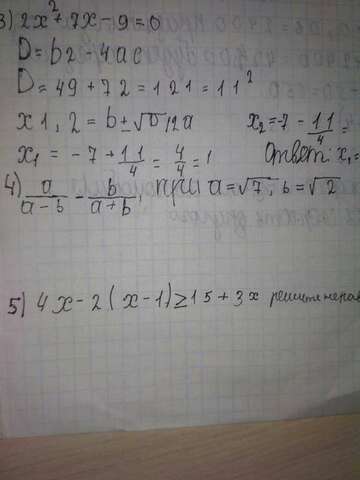 3) 2x² + 7x - 9 = 0
D = b2 - 4ac
D = 49 + 72 = 121 = 11²
x1,2 = b ± √D/2a x₂ = -7 - 11/4 =
x₁ = -7 + 11/4 = 4/4 = 1 Ответ: x₁ =
4) a/a-b - b/a+b, при a = √7, b = √2
5) 4x - 2(x-1) ≥ 15 + 3x решите нерав